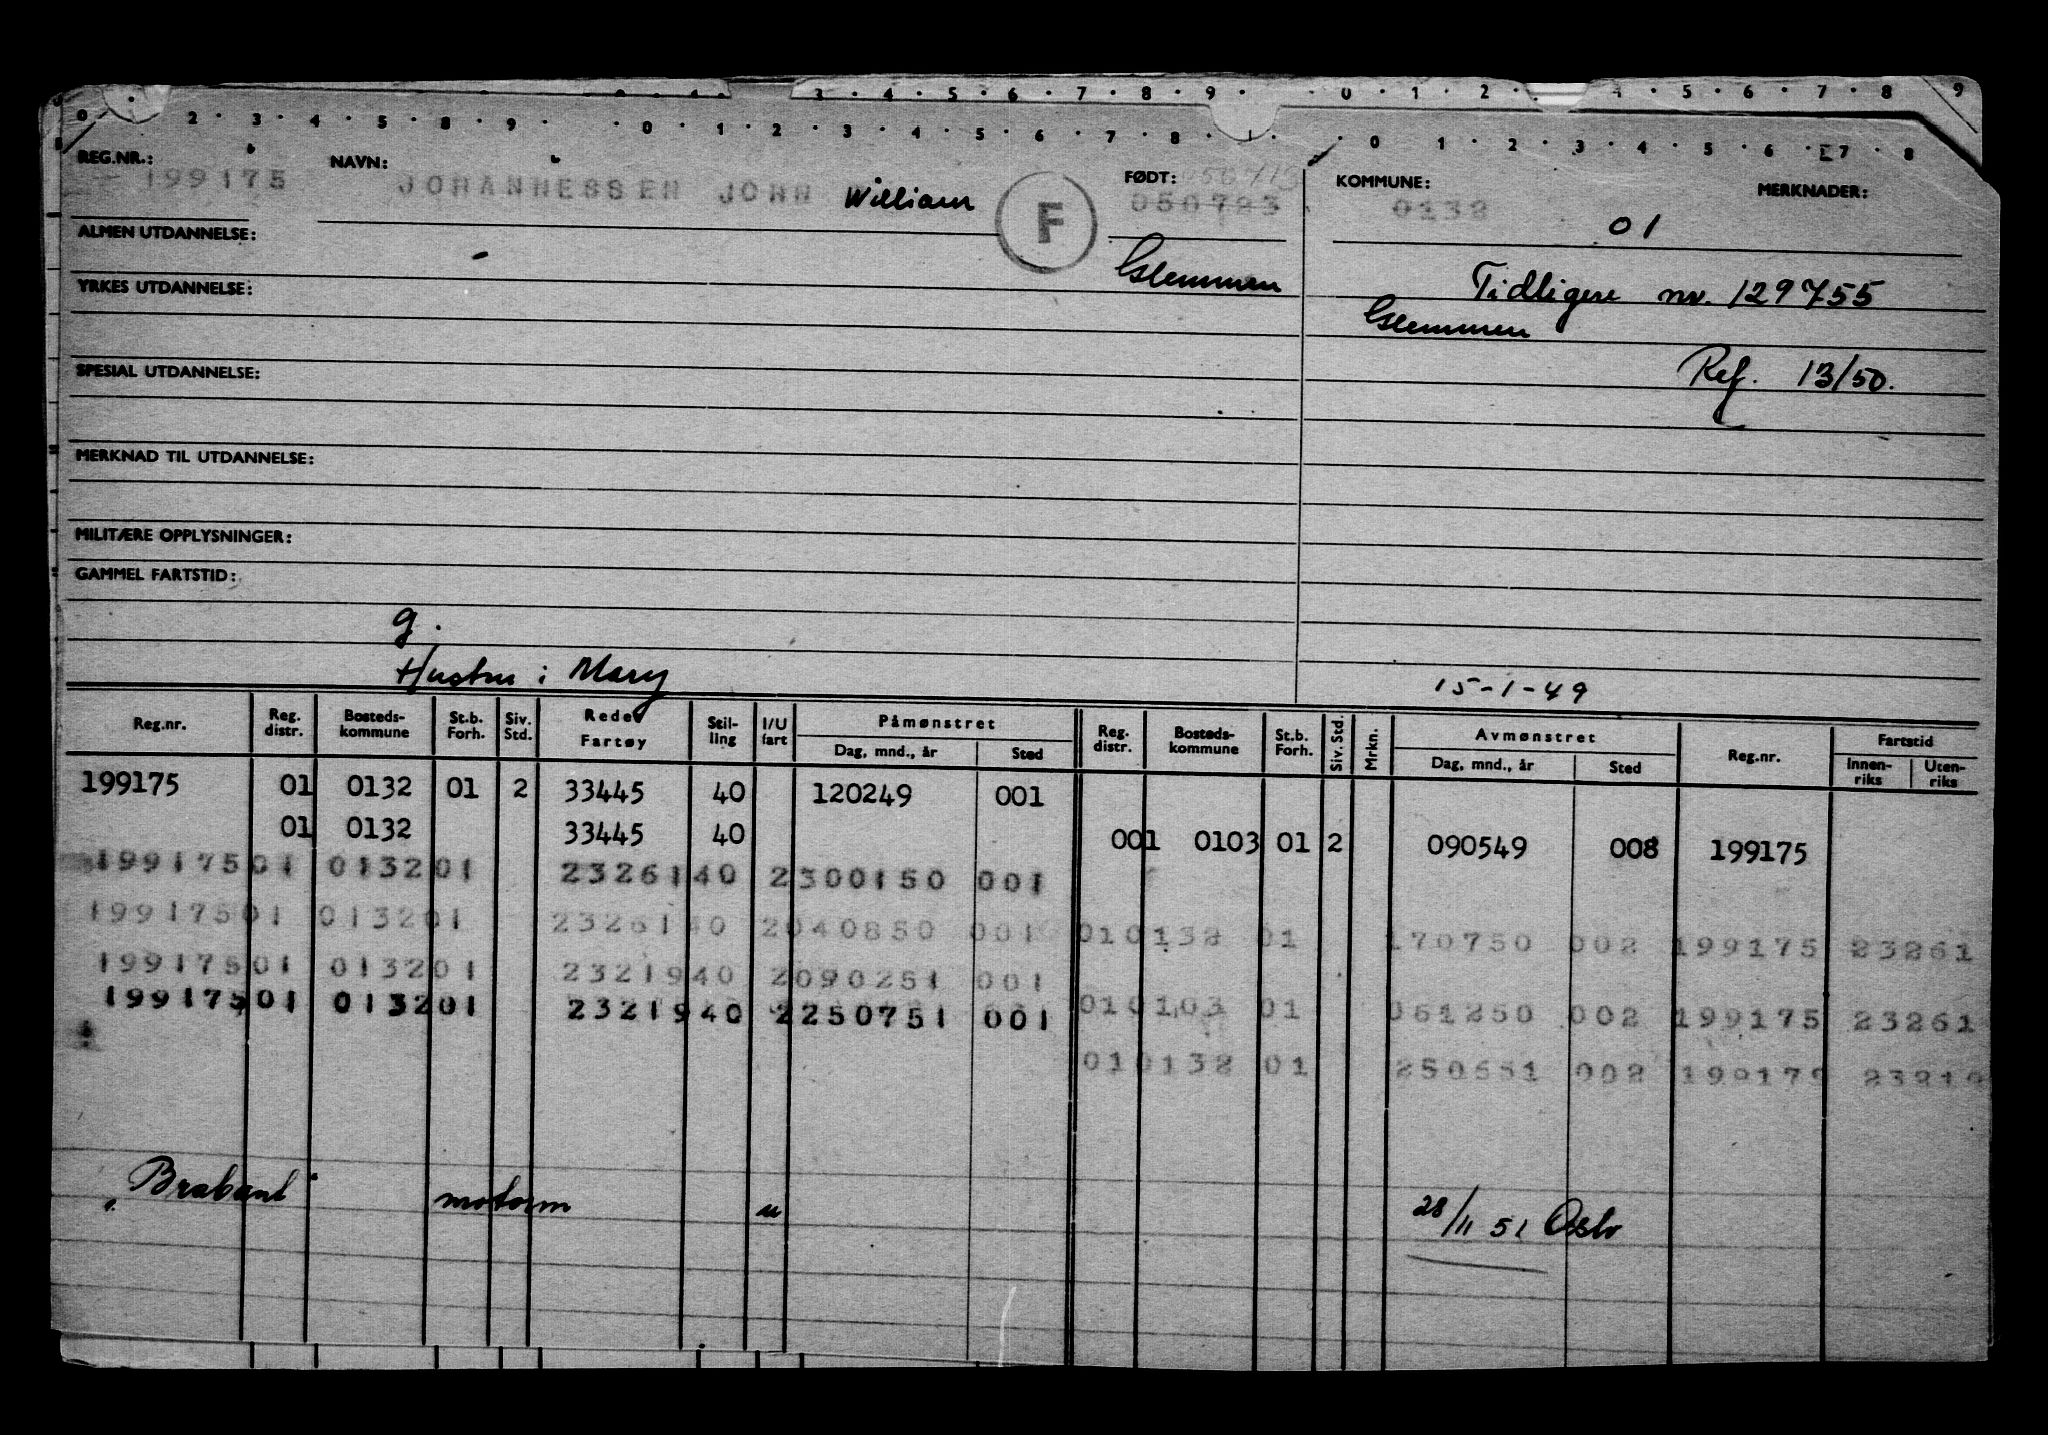 3 · 4 · 5 · 6 · 7 · 8 · 9 · 0 · 1 · 2 · 4 · 5 · 6 · 7 · 8 9
0 2 · 3 · 4 · 5 · 8 · 9 · 0 · 1 · 2 · 3 · 4 · 5 · 6 · 7 · 8 · 1 · 0 · 1 · 2 · 3 · 4 · 5 · 6 · 7 · 8
REG.NR.: 199175 NAVN: JOHANNESSEN JOHN William F FØDT: 050723 KOMMUNE: 0132 MERKNADER:
01
ALMEN UTDANNELSE: -
Glemmen Tidligere nr. 129755
YRKES UTDANNELSE:
Glemmen
Ref. 13/50.
SPESIAL UTDANNELSE:
MERKNAD TIL UTDANNELSE:
MILITÆRE OPPLYSNINGER:
GAMMEL FARTSTID:
g.
Hustru: Mary 15-1-49
Reg.nr. Reg. distr. Bosteds-kommune St.b. Forh. Siv. Std. Rederi Fartøy Stil-ling I/U fart Påmønstret Dag, mnd., år Sted Reg. distr. Bosteds-kommune St.b. Forh. Siv. Std. Mrkn. Avmønstret Dag, mnd., år Sted Reg.nr. Fartstid Innen-riks Uten-riks
199175 01 0132 01 2 33445 40 120249 001
01 0132 33445 40 001 0103 01 2 090549 008 199175
199175 01 0132 01 23261 40 2 300150 001
199175 01 0132 01 23261 40 2 040850 001 01 0132 01 170750 002 199175 23261
199175 01 0132 01 23219 40 2 090251 001
199175 01 0132 01 23219 40 2 250751 001 01 0103 01 061250 002 199175 23261
01 0132 01 250651 002 199175 23219
"Brabant" motorm u 28/11 51 Oslo